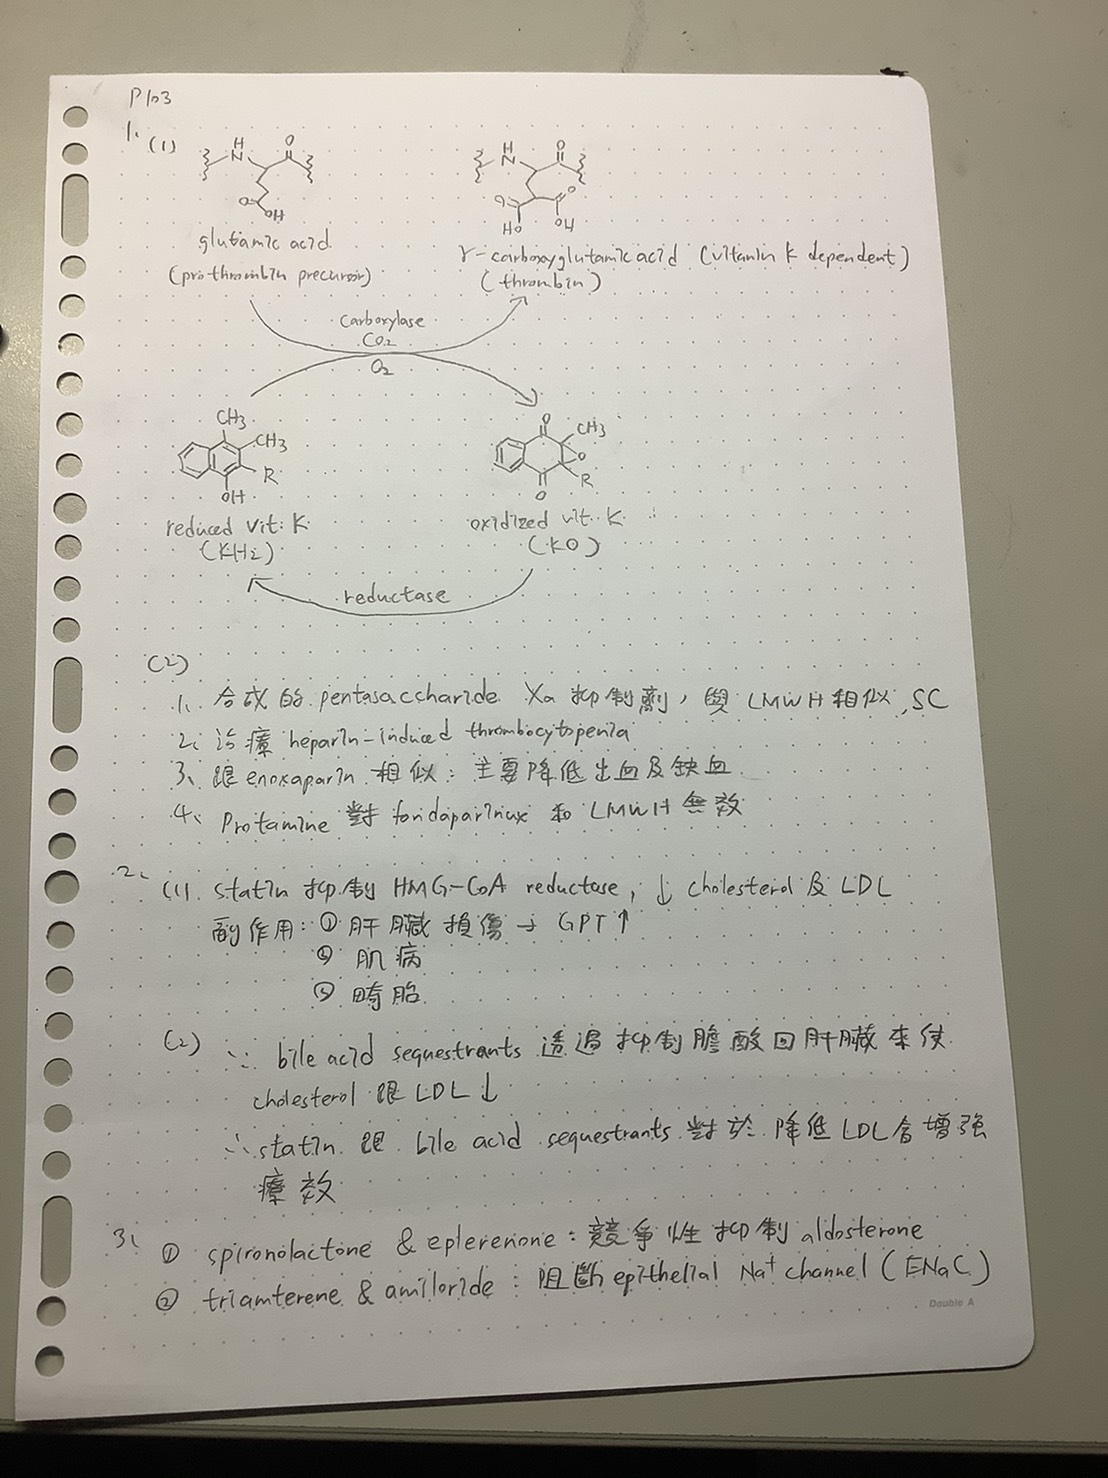 P103
1. (1)
H
N
O
O
OH
H
N
O
O
O
HO
OH
glutamic acid
(prothrombin precursor)
γ-carboxyglutamic acid (vitamin K dependent)
(thrombin)
carboxylase
CO2
O2
CH3
CH3
R
OH
O
CH3
O
R
O
reduced vit. K
(KH2)
oxidized vit. K
(KO)
reductase
(2)
1. 合成的 pentasaccharide Xa 抑制劑, 與 LMWH 相似, SC
2. 治療 heparin-induced thrombocytopenia
3、跟 enoxaparin 相似: 主要降低出血及缺血
4、Protamine 對 fondaparinux 和 LMWH 無效
2、
(1). statin 抑制 HMG-CoA reductase, ↓ cholesterol 及 LDL
副作用: ① 肝臟損傷 → GPT↑
② 肌病
③ 畸胎
(2) ∵ bile acid sequestrants 透過抑制膽酸回肝臟來使
cholesterol 跟 LDL↓
∴ statin 跟 bile acid sequestrants 對於降低 LDL 會增強
療效
3、① spironolactone & eplerenone: 競爭性抑制 aldosterone
② triamterene & amiloride: 阻斷 epithelial Na+ channel (ENaC)
Double A